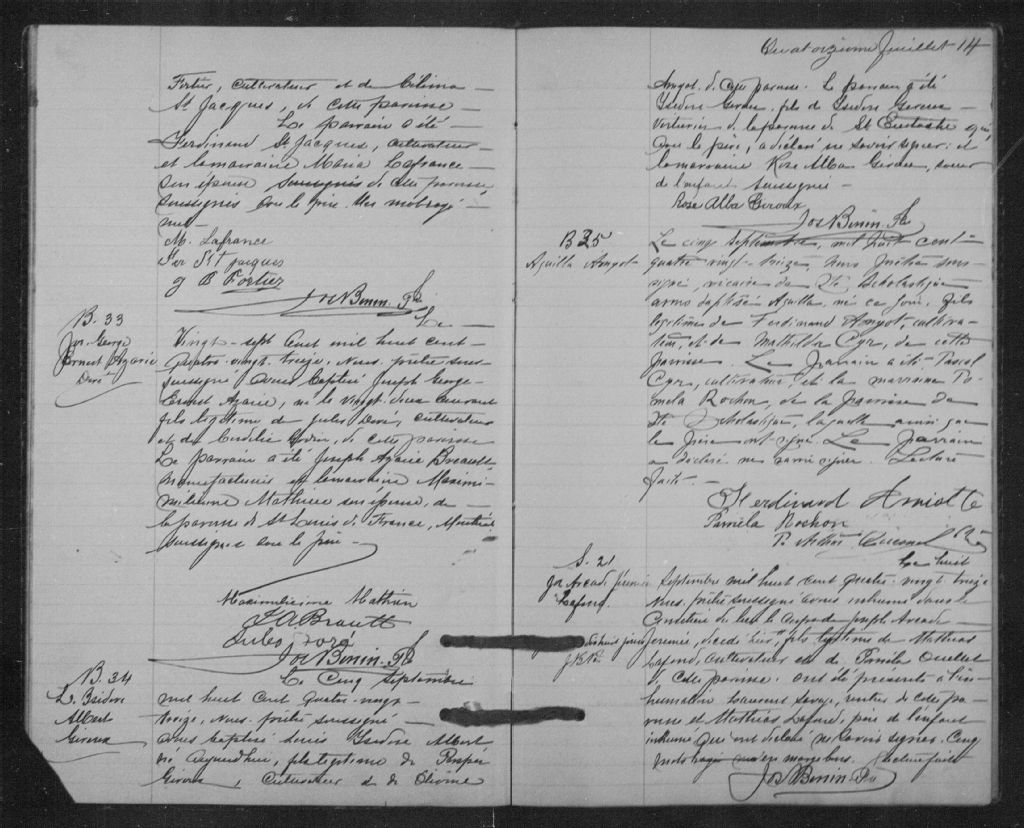 Fortier, cultivateur et de Célima
St Jacques, de cette paroisse
Le parrain a été
Ferdinand St Jacques, cultivateur
et la marraine Maria Lafrance
son épouse soussignés de cette paroisse
soussignés avec le père. Un mot rayé
nul
M. Lafrance
Fer St jacques
J B Fortier
Jos Bonin. Ptre
B. 33
Jos. George
Ernest Azarie
Doré
Le
Vingt-sept Aout mil huit cent
quatre-vingt-treize, Nous, prêtre sous-
soussigné avons baptisé Joseph George
Ernest Azarie, né le vingt deux courant
fils légitime de Jules Doré, cultivateur
et de, de cette paroisse
Le parrain a été Joseph Azarie Breault
Manufacturier et la marraine Maximi-
milienne Mathieu son épouse, de
la paroisse de St Louis de France, Montréal
soussignés avec le père
Maximilienne Mathieu
J A Brault
Jules Doré
Jos Bonin. Ptre
B. 34
Ls. Isidore
Albert
Giroux
Le Cinq Septembre
mil huit cent quatre-vingt
treize, Nous, prêtre soussigné
avons baptisé Louis Isidore Albert
né aujourd'hui, fils légitime de
Giroux, cultivateur & de
Quatorzième feuillet 14
Amyot, de cette paroisse. Le parrain a été
Isidore Giroux, fils de Isidore Giroux
de la paroisse de St Eustache qui,
avec le père, a déclaré ne savoir signer; et
la marraine Rose Alba Giroux, soeur
de l'enfant soussignée
Rose Alba Giroux
Jos Bonin. Ptre
B 35
Azilla Amyot
Le cinq Septembre, mil huit cent
quatre vingt-treize, nous prêtre sous-
signé, vicaire de Ste Scholastique
avons baptisé Azilla, né ce jour, fils
légitime de Ferdinand Amyot, cultiva-
teur, et de Mathilda Cyr, de cette
paroisse Le Parrain a été Pascal
Cyr, cultivateur, et la marraine Pa-
mela Rochon, de la paroisse de
Ste Scholastique, laquelle ainsi que
le père ont signé Le Parrain
a déclaré ne savoir signer. Lecture
faite
Ferdinard Amiotte
Paméla Rochon
S. 21
Jos Arcade Jérémie
Lafond
Le huit
Septembre mil huit cent quatre-vingt treize
Nous, prêtre soussigné avons inhumé dans le
Cimetière du lieu le corps de Joseph Arcade
Jérémie, décédé hier, fils légitime de Mathias
Lafond, cultivateur et de Paméla Ouellet
de cette paroisse. ont été présents à l'in-
humation Laurent Sauvé, rentier de cette pa-
roisse et Mathias Lafond, père de l'enfant
inhumé qui ont déclaré ne savoir signer. Cinq
mots rayés Lecture faite
Jos Bonin. Ptre